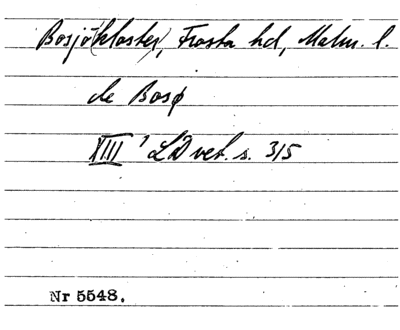 Bosjö(kloster), Frosta hd, Malm. l.
de Bosø
XIII ' LD vet. s. 315
Nr 5548.